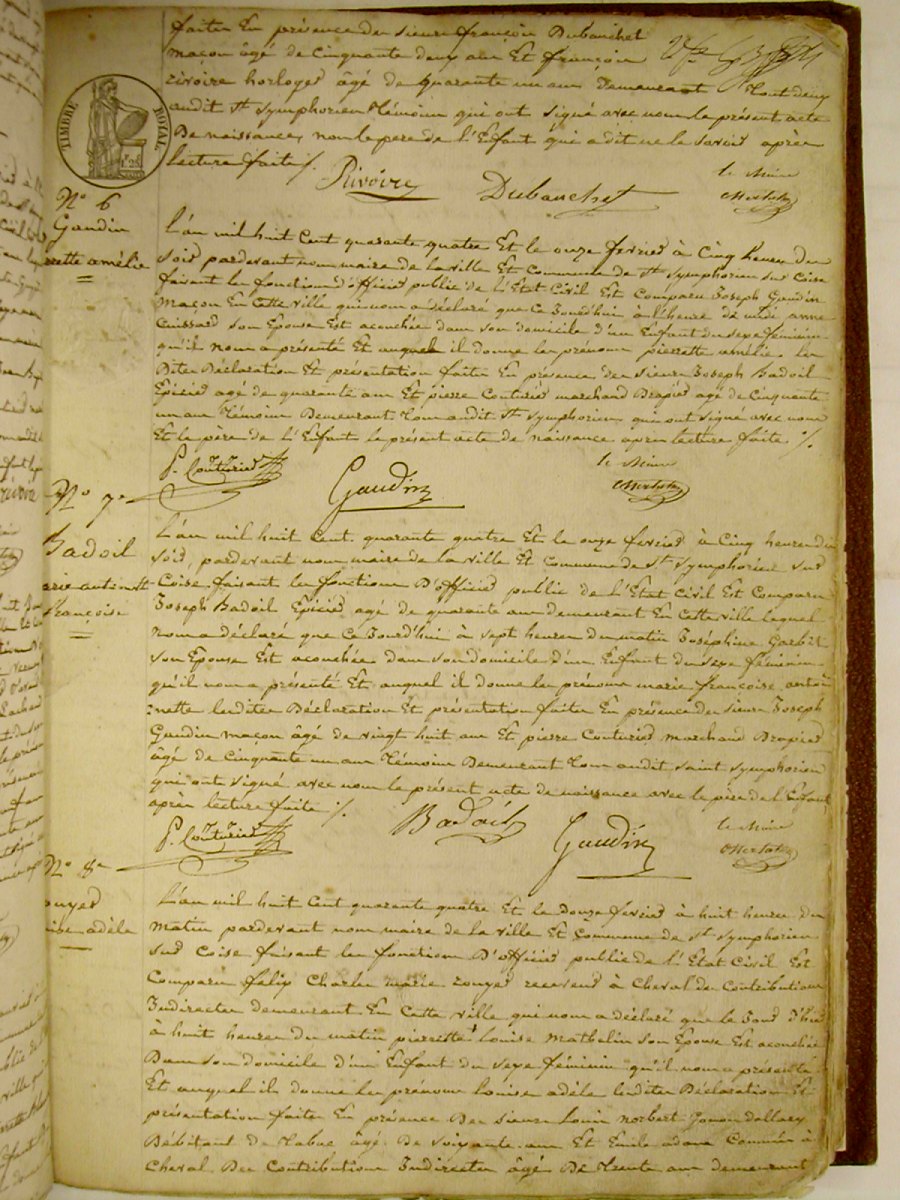 faites En présence des sieurs françois Dubanchet
maçon âgé de Cinquante deux ans Et françois
rivoire horloger âgé de quarante un ans Demeurant Tout deux
audit St Symphorien Témoins qui ont signé avec nous le présent acte
De naissance, non le pere de l'Enfant qui a dit ne le savoir après
lecture faite ./.
TIMBRE ROYAL
Rivoire Dubanchet le Maire
N° 6
Gaudin
rette amélie
L'an mil huit Cent quarante quatre Et le onze fevrier à Cinq heures du
Soir pardevant nous maire de la ville Et Commune de St Symphorien sur Coise
faisant les fonctions d'officier public de l'Etat Civil Est Comparu Joseph Gaudin
maçon En Cette ville qui nous a déclaré que Ce Jourd'hui à l'heure de midi anne
Cuissard son Epouse Est acouchée dans son domicile d'un Enfant du sexe féminin
qu'il nous a présenté Et auquel il donne les prénoms pierrette amélie les
Dites Déclaration Et présentation faites En présence des sieurs Joseph Badoil
Epicier agé de quarante ans Et pierre Couturier marchand Drapier agé de Cinquante
un ans Témoins Demeurant Tous audit St Symphorien, qui ont signé avec nous
Et le père de l'Enfant le présent acte de naissance après lecture faite ./.
P. Couturier Gaudin le Maire
N° 7e
Badoil
arie antoinette
françoise
L'an mil huit Cent quarante quatre Et le onze fevrier à Cinq heures du
soir, pardevant nous maire de la ville Et Commune de St Symphorien sur
Coise faisant les fonctions D'officier public de l'Etat Civil Est Comparu
Joseph Badoil Epicier agé de quarante ans demeurant En Cette ville lequel
nous a déclaré que Ce Jourd'hui à sept heures Du matin Joséphine
son Epouse Est acouchée dans son domicile d'un Enfant du sexe féminin
qu'il nous a présenté Et auquel il donne les prénoms marie françoise antoi
nette lesdites Déclaration Et présentation faites En présence des sieurs Joseph
Gaudin maçon âgé de vingt huit ans Et pierre Couturier Marchand Drapier
âgé de Cinquante un ans Témoins Demeurant Tous audit saint Symphorien
qui ont signé avec nous le présent acte de naissance avec le père de l'Enfant
après lecture faite ./.
P. Couturier Badoil Gaudin le Maire
N° 8e
ouyer
ise adèle
L'an mil huit Cent quarante quatre Et le douze fevrier à huit heures du
Matin pardevant nous maire de la ville Et Commune de St Symphorien
sur Coise faisant les fonctions D'officier public de l'Etat Civil Est
Comparu felix Charles marie rouyer receveur à Cheval des Contributions
Indirectes demeurant En Cette ville qui nous a déclaré que le Jour D'hier
à huit heures du matin pierrette Louise Mathelin son Epouse Est acouchée
Dans son domicile d'un Enfant du sexe féminin qu'il nous a présenté
Et auquel il donne les prénoms Louise adèle lesdites Déclaration Et
présentation faites En présence Des sieurs Louis norbert
Débitant de Tabac âgé De soixante ans Et Emile adam Commis à
Cheval Des Contributions Indirectes âgé De Trente ans demeurant